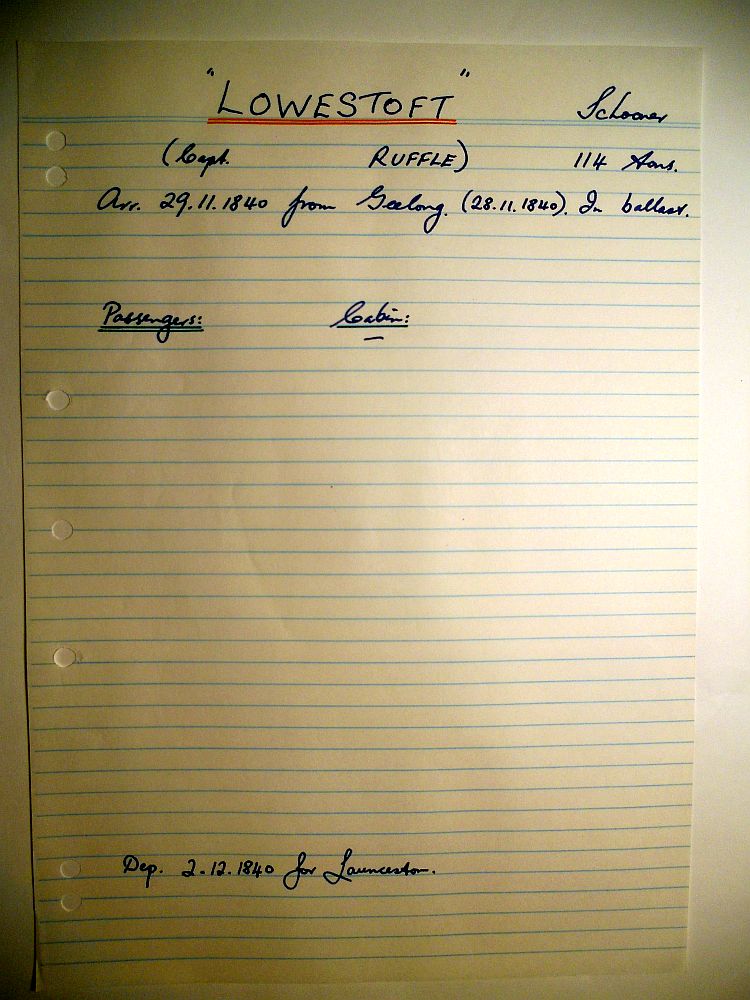 "LOWESTOFT" Schooner
(Capt. RUFFLE) 114 tons.
Arr. 29.11.1840 from Geelong. (28.11.1840). In ballast.
Passengers: Cabin:
—
Dep. 2.12.1840 for Launceston.